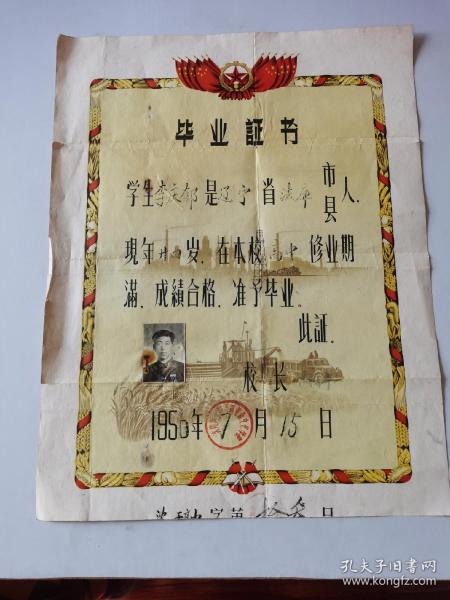 毕业証书
学生李文郁是辽宁省法库市县人.
現年廿四岁.在本校高中修业期
滿.成績合格.准予毕业.
此証.
校长
1956年7月15日
字第 号
孔夫子旧书网
www.kongfz.com